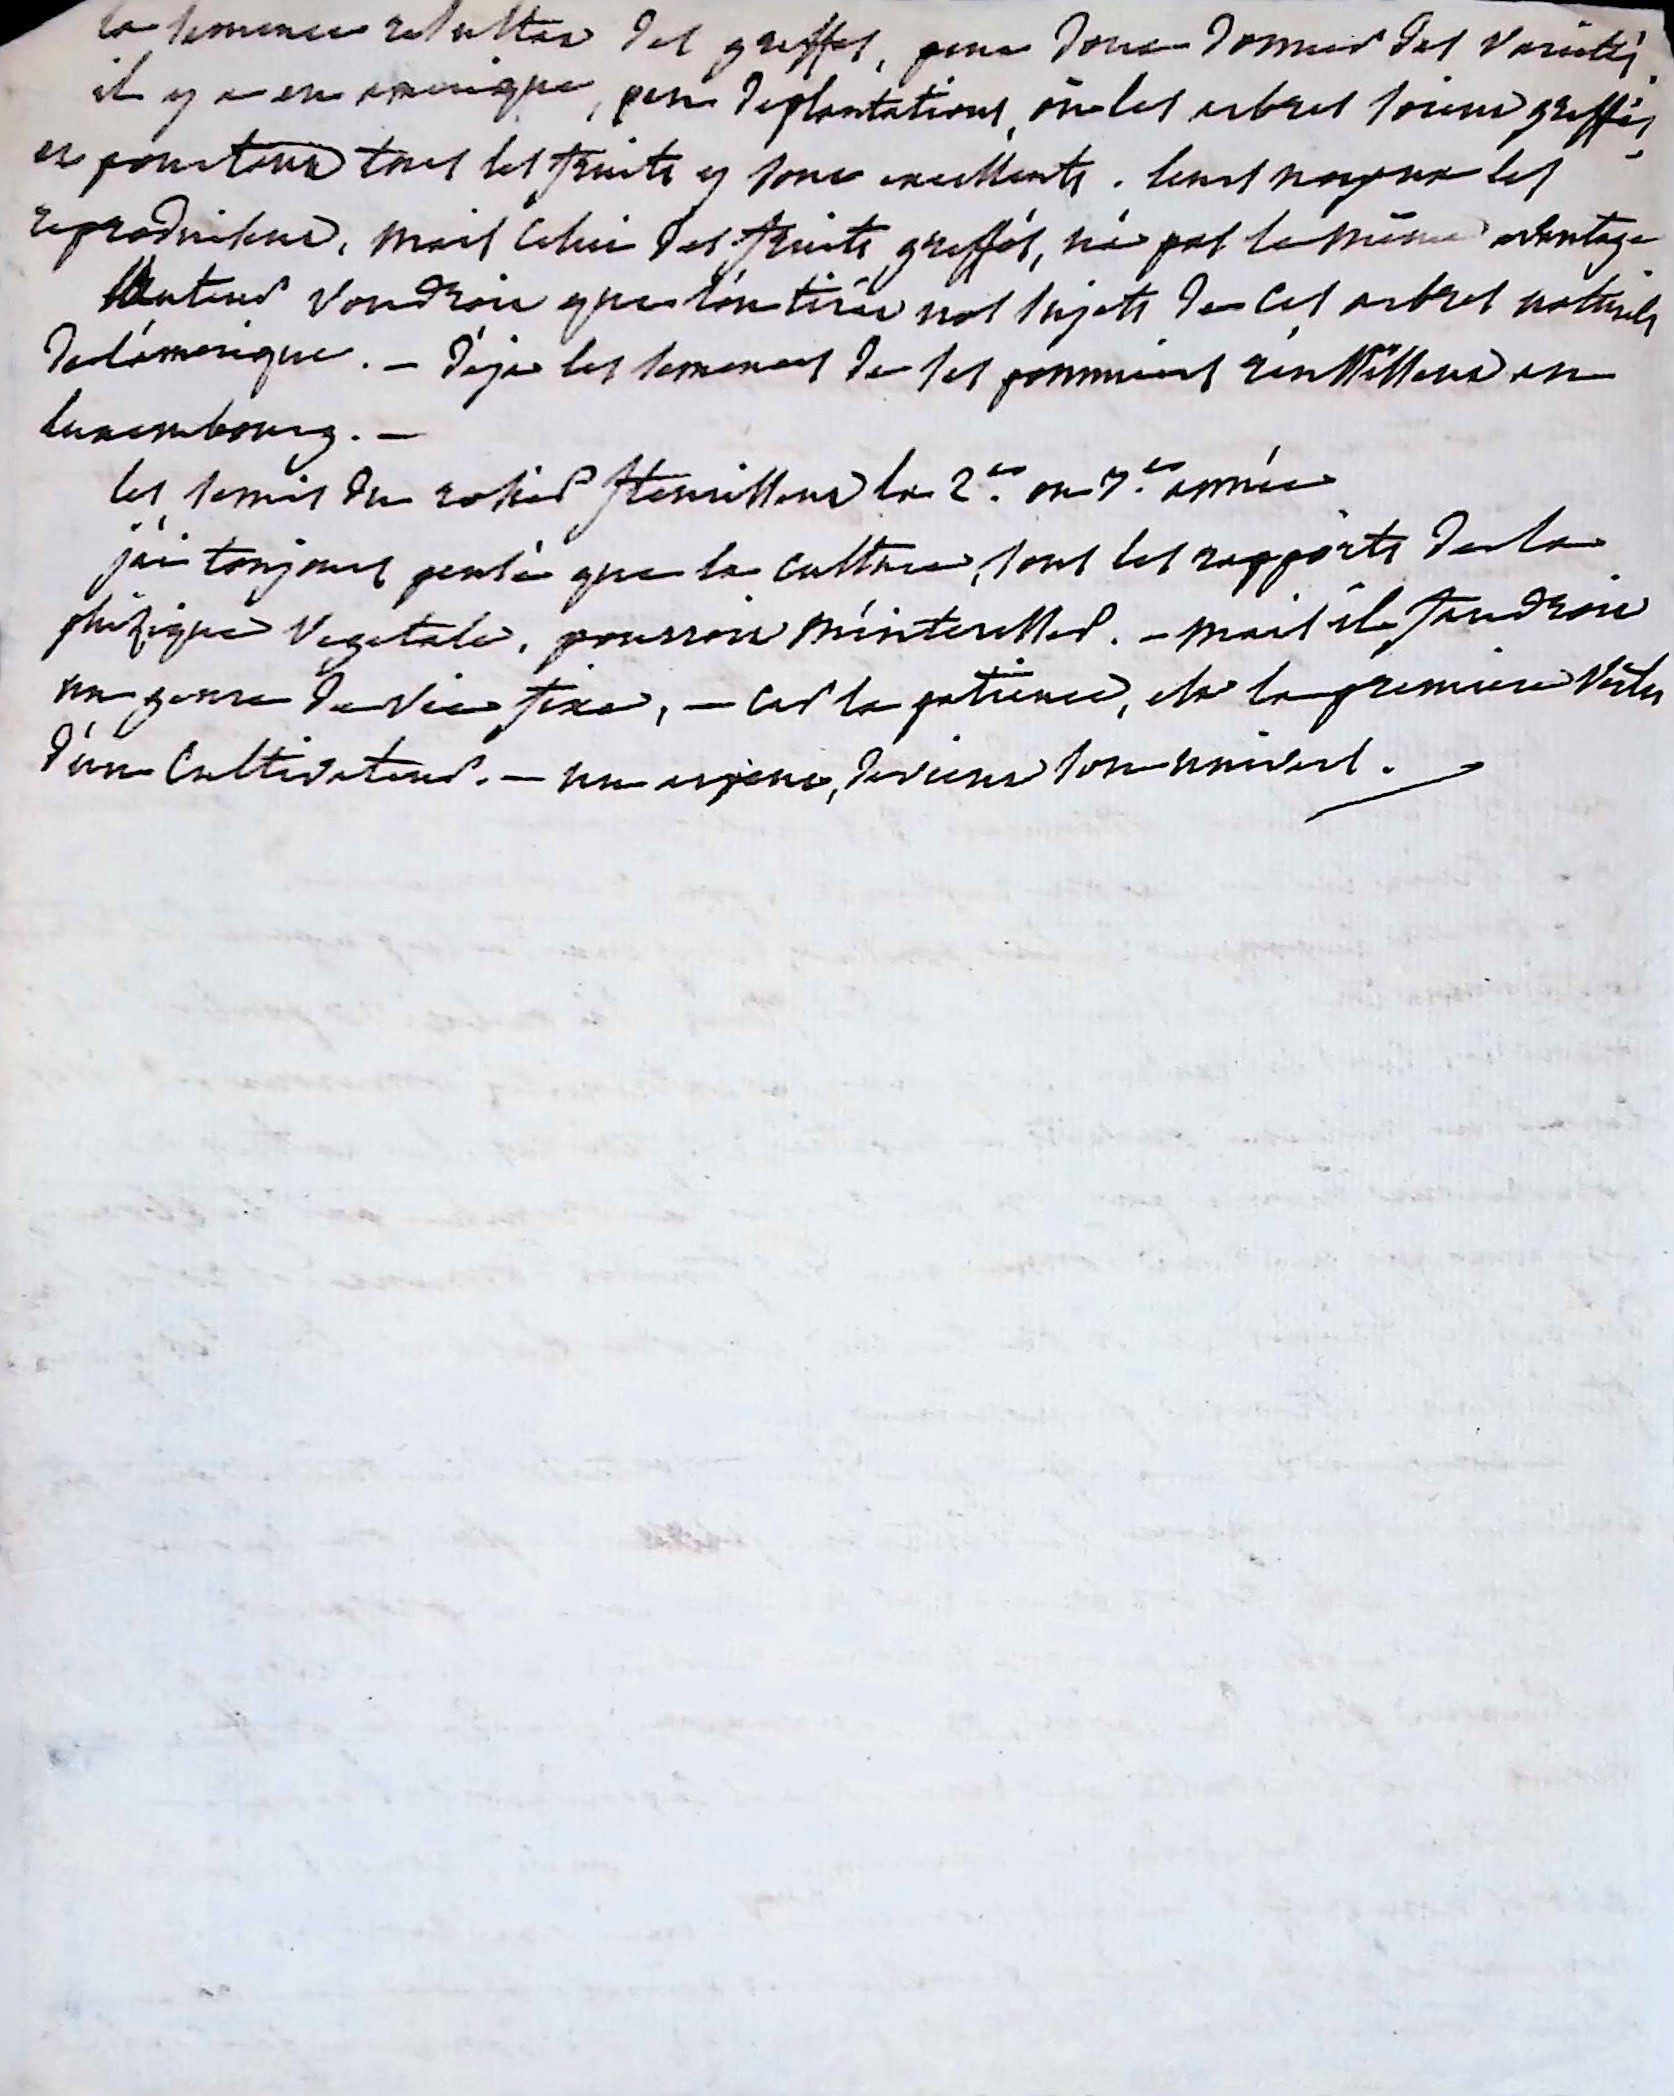 la semence resultée des greffes, peut donc donner des varietés.
il y a en amerique, peu de plantations, où les arbres soient greffés,
et pourtant tous les fruits y sont excellents. leurs noyaux les
reproduisent, mais celui des fruits greffés, n'a pas le même avantage
l'auteur voudroit que l'on tirât nos sujets de ces arbres naturels
de l'amerique. – déja les semences de ses pommiers réussissent au
luxembourg. –
les semis du rosier fleurissent la 2.e ou 3.e année
j'ai toujours pensé que la culture, sous les rapports de la
phisique vegetale, pourroit m'interesser. – mais il faudroit
un genre de vie fixe, – car la patience, est la premiere vertu
d'un cultivateur. – un arpent, devient son univers.